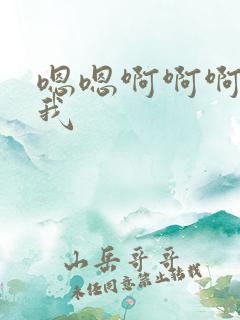 嗯嗯啊啊啊
我
山岳哥哥
未经同意禁止转载